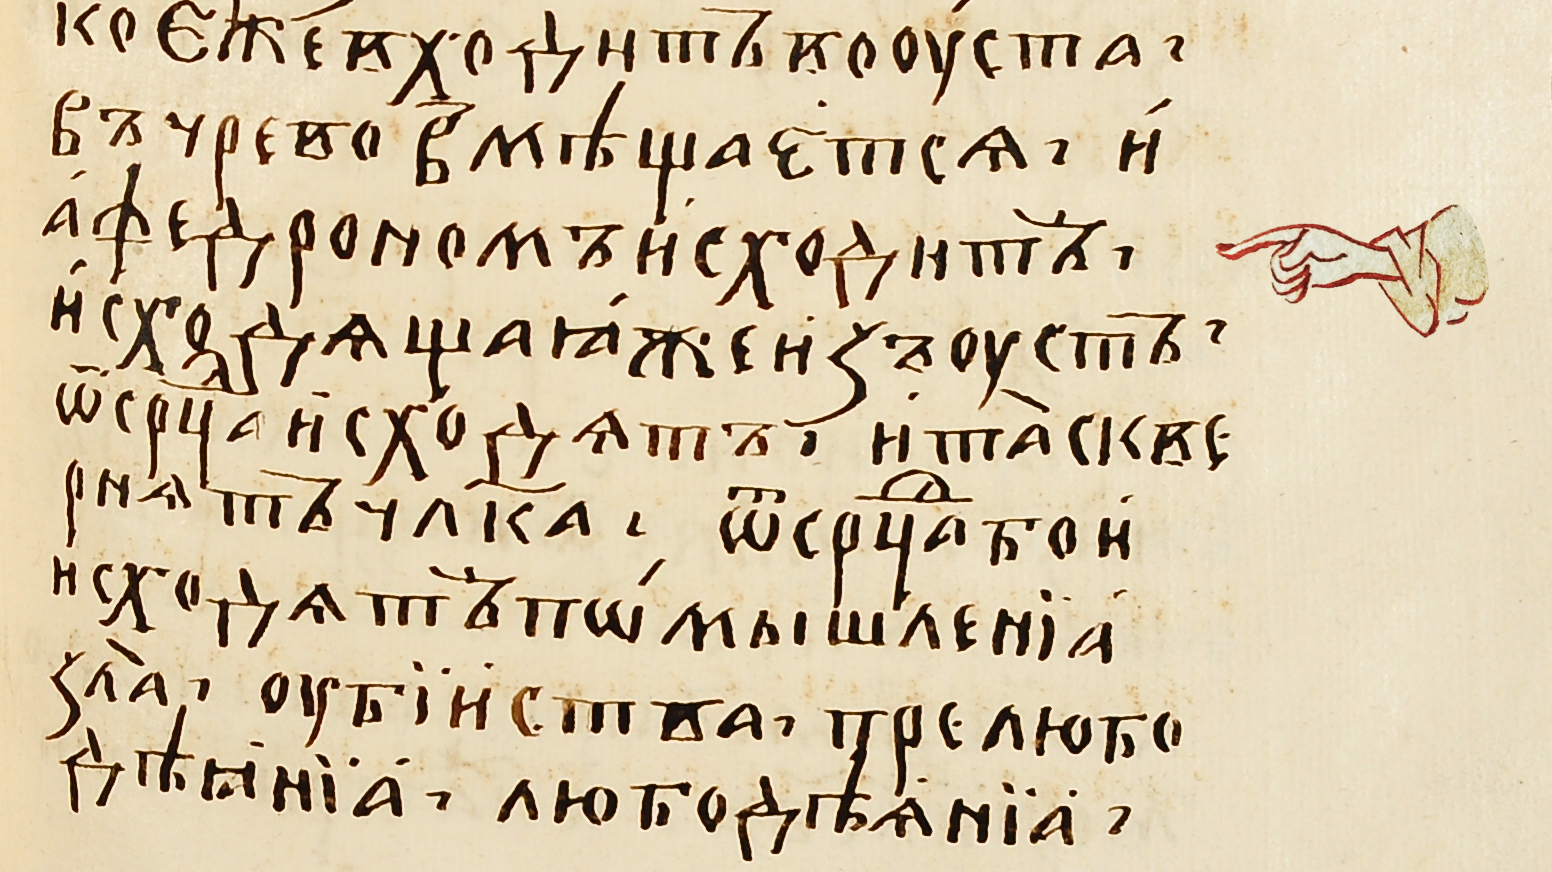 ко є҆́же входитъ во оуста,
въ чрево вмѣщаетсѧ, и҆
а҆федрономъ и҆сходитъ,
и҆сходѧщаꙗ же и҆зъ оустъ,
ѿ срⷣца и҆сходѧтъ, и҆ та̀ скве
рнѧтъ члк҃а, ѿ срⷣца бо и҆
исходѧтъ пѡмышленїа
зла̀, оубїиства, прелюбо
дѣꙗнїа, любодѣѧнїа,